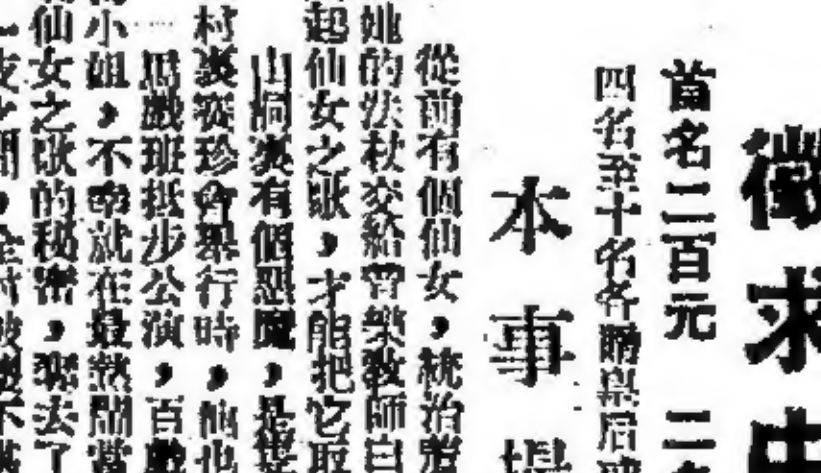 徵求中
首名二百元 二
四名至十名各贈皇后
本事
從前有個仙女，統治着
她的法杖交給音樂教師白
起仙女之歌，才能把它取
山洞裏有個惡魔，是隻
村裏 珍會舉行時，他也
馬戲班抵步公演，百戲
小姐，不幸就在最熱鬧當
仙女之歌的秘密，騙去了
間，全村被